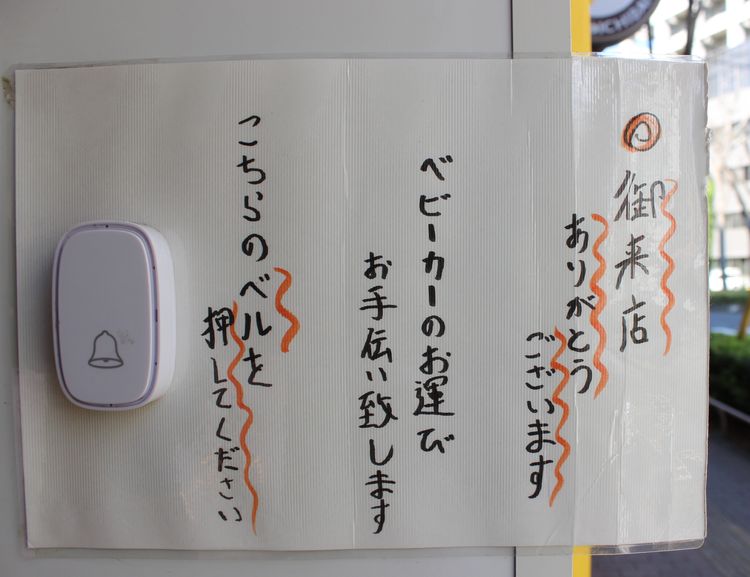 御来店
ありがとう
ございます
ベビーカーのお運び
お手伝い致します
こちらのベルを
押してください